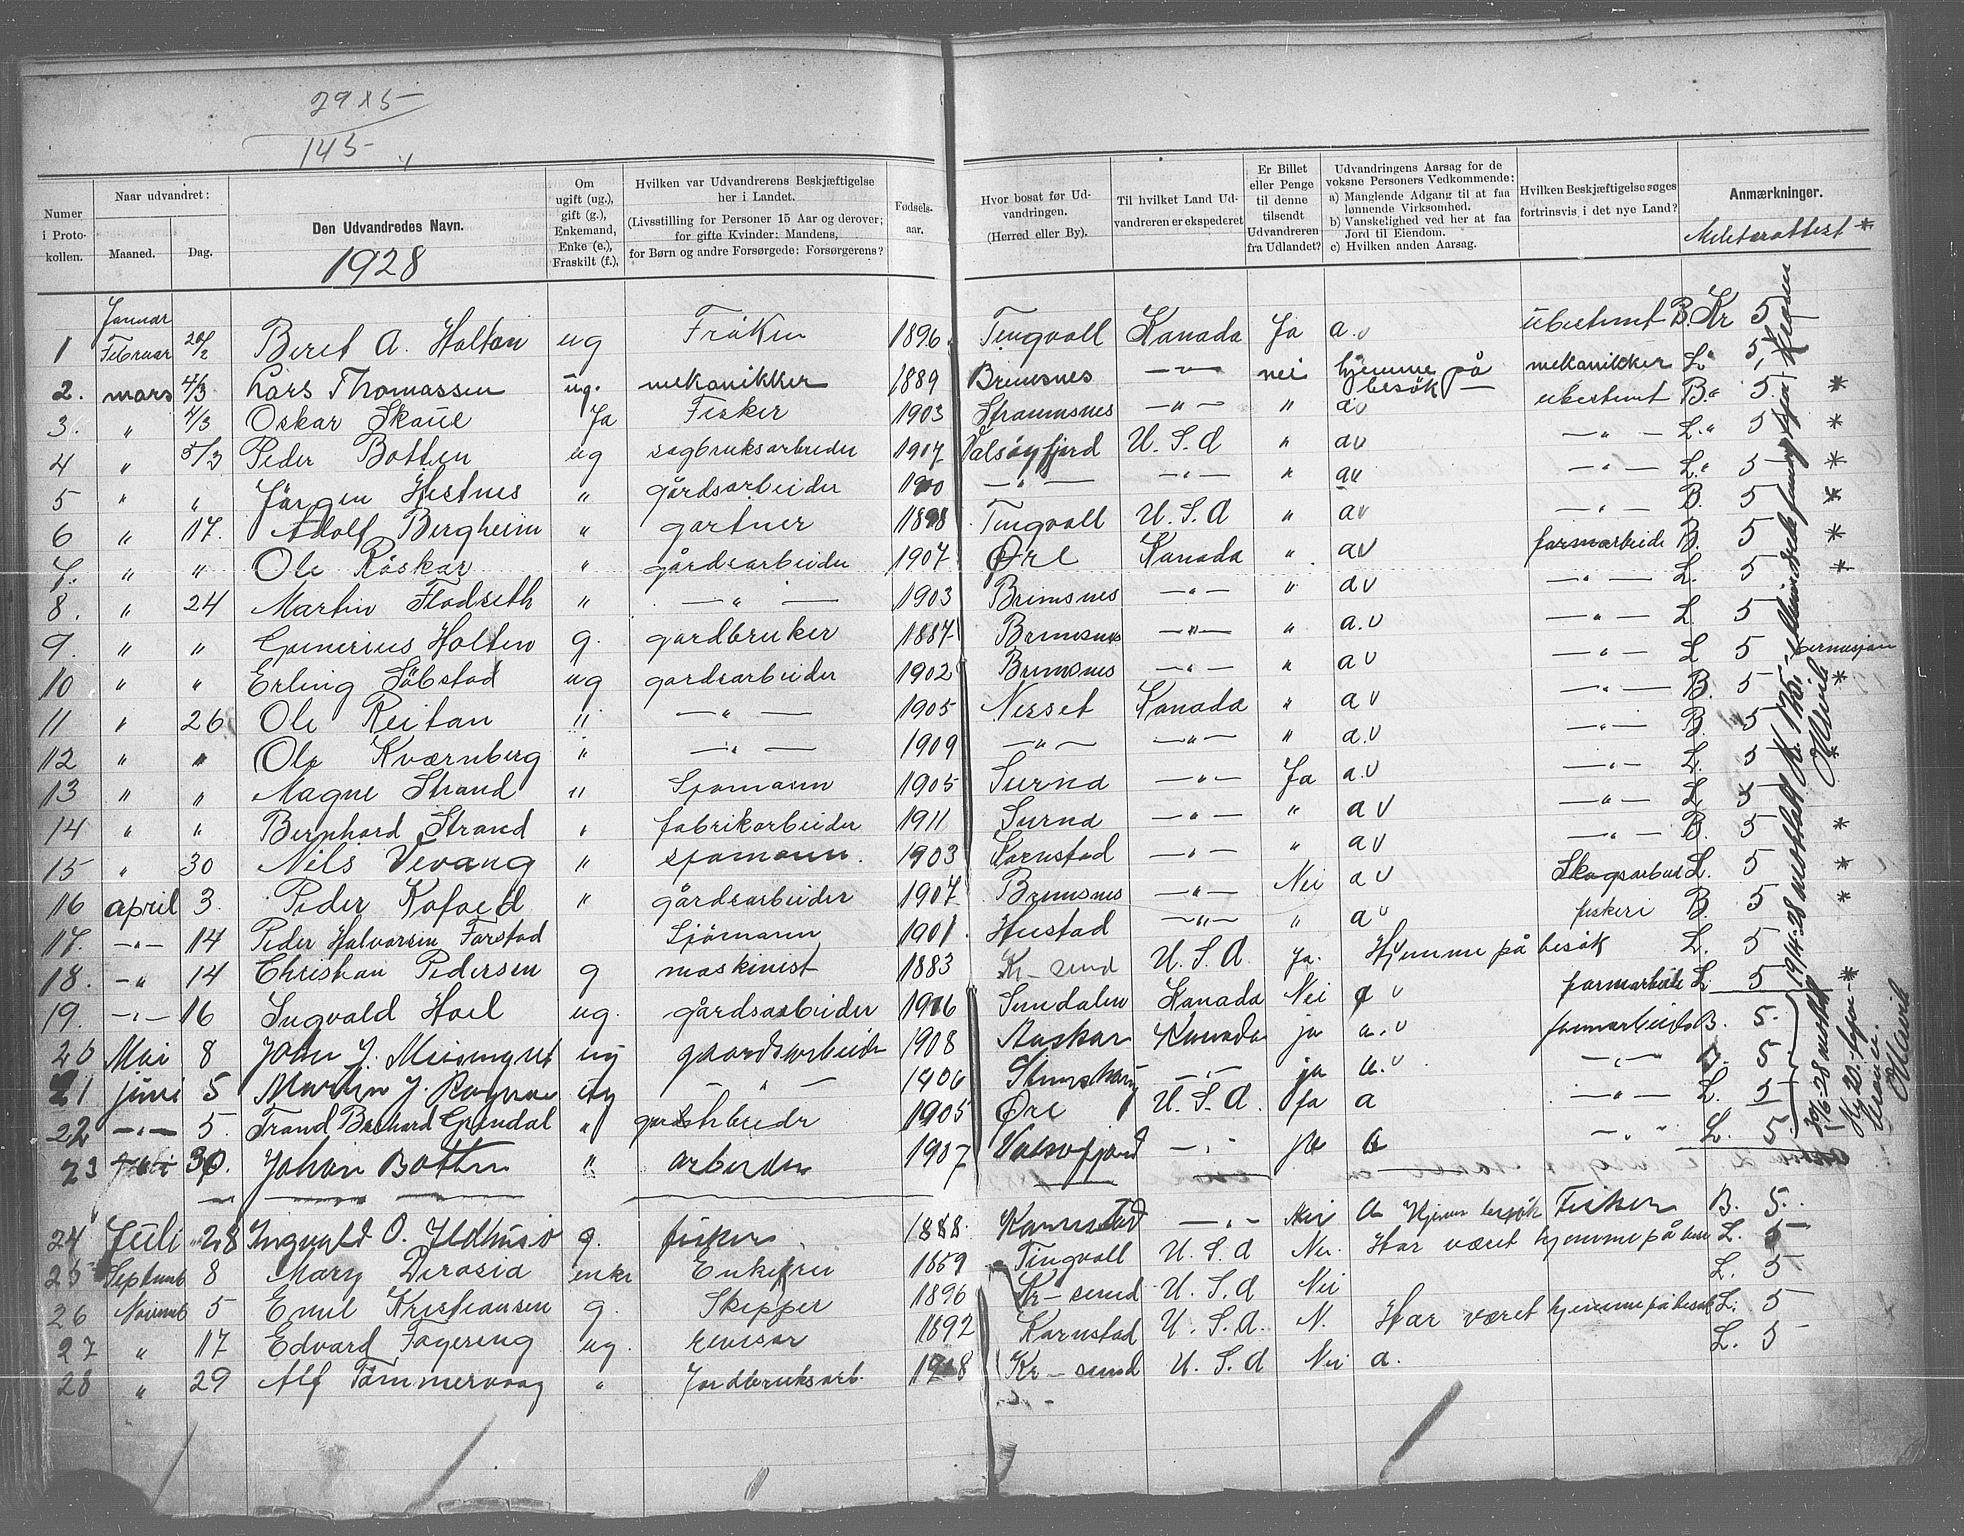 29 x 5
145
Numer i Protokollen.
Naar udvandret:
Maaned.
Dag.
Den Udvandredes Navn.
1928
Om ugift (ug.), gift (g.), Enkemand, Enke (e.), Fraskilt (f.),
Hvilken var Udvandrerens Beskjæftigelse her i Landet.
(Livsstilling for Personer 15 Aar og derover; for gifte Kvinder: Mandens, for Børn og andre Forsørgede: Forsørgerens?
Fødselsaar.
Hvor bosat før Udvandringen.
(Herred eller By).
Til hvilket Land Udvandreren er ekspederet
Er Billet eller Penge til denne tilsendt Udvandreren fra Udlandet?
Udvandringens Aarsag for de voksne Personers Vedkommende:
a) Manglende Adgang til at faa lønnende Virksomhed.
b) Vanskelighed ved her at faa Jord til Eiendom.
c) Hvilken anden Aarsag.
Hvilken Beskjæftigelse søges fortrinsvis i det nye Land?
Anmærkninger.
Militærattest *
Januar
1 Februar 20/2 Beret A. Holten ug Frøken 1896 Tingvoll Kanada Ja a. ubestemt B. Kr 5
2. mars 4/3 Lars Thomassen ug. mekanikker 1889 Bremsnes —"— nei hjemme på besøk — mekanikker L. 5
3. " 4/3 Oskar Skaue Ja Fisker 1903 Straumsnes —"— " a ubestemt B. 5. *
4 " 5/3 Peder Botten ug sagbruksarbeider 1907 Valsøyfjord U. S. A " a —"— L. 5 *
5 " " Jørgen Hestnes " gårdsarbeider 1900 —"— —"— " a —"— L. 5 *
6 " 17. Adolf Bergheim " gartner 1898 Tingvoll U. S. A " a —"— B. 5 *
7. " " Ole Røskar " gårdsarbeider 1907 Øre Kanada " a farmarbeide B. 5 *
8. " 24 Martin Flodseth " —"— 1903 Bremsnes —"— " a —"— L. 5 *
9. " " Gunerius Holten g. gardbruker 1887 Bremsnes —"— " a. —"— L. 5
10 " " Erling Søbstad ug gardsarbeider 1902 Bremsnes —"— " a —"— L 5
11 " 26 Ole Reitan " —"— 1905 Nesset Kanada " a —"— B. 5 *
12 " " Ole Kværnberg " —"— 1909 —"— —"— " a. —"— B. 5
13 " " Magne Strand " Sjømann 1905 Surna —"— Ja a. —"— L. 5 *
14 " " Bernhard Strand " fabrikarbeider 1911 Surna —"— " a —"— L. 5
15 " 30 Nils Vevang " sjømann. 1903 Kornstad —"— " a —"— B. 5 *
16 april 3. Peder Kofoed " gårdsarbeider 1907 Bremsnes —"— Nei a Skogsarbeid L. 5 *
17. —"— 14 Peder Halvorsen Farstad Sjømann 1901. Hustad —"— " a fiskeri B. 5 *
18. —"— 14 Christian Pedersen g maskinist 1883 Kr-sund U. S. A. Ja. Hjemme på besøk L. 5
19. —"— 16 Ingvald Hoel ug. gårdsarbeider 1906 Sundalen Kanada Nei a farmarbeide L. 5 *
20 Mai 8 John J. ug gaardsarbeider 1908 Kanada ja a. farmarbeide B. 5.
21 juni 5 Martin J. ug —"— 1906 —"— ja a. —"— B. 5
22 —"— 5. Trond Bernhard " gardsarbeider 1905 Øre U. S. A. ja a —"— L. 5
23 30. Johan Botten " arbeider 1907 Valsøfjord —"— ja a —"— L. 5
24 Juli 28 Ingvald O. Ildhusø g. fisker 1888. Kornstad —"— Nei a Hjemme besøk Fisker B. 5.
25 Septemb 8 Mary Derosia enke Enkefru 1859 Tingvoll U. S. A Nei. Har været hjemme på bes L. 5
26 Novemb 5 Emil Kristiansen g. Skipper 1896 Kr-sund U. S. A Nei L. 5
27 " 17 Edvard Fagereng ug. revisor 1892 Kornstad U. S. A. N. Har været hjemme på besøk L. 5
28 " 29 Alf Tømmervaag " Jordbruksarb. 1908 Kr-sund U. S. A Nei a. L. 5